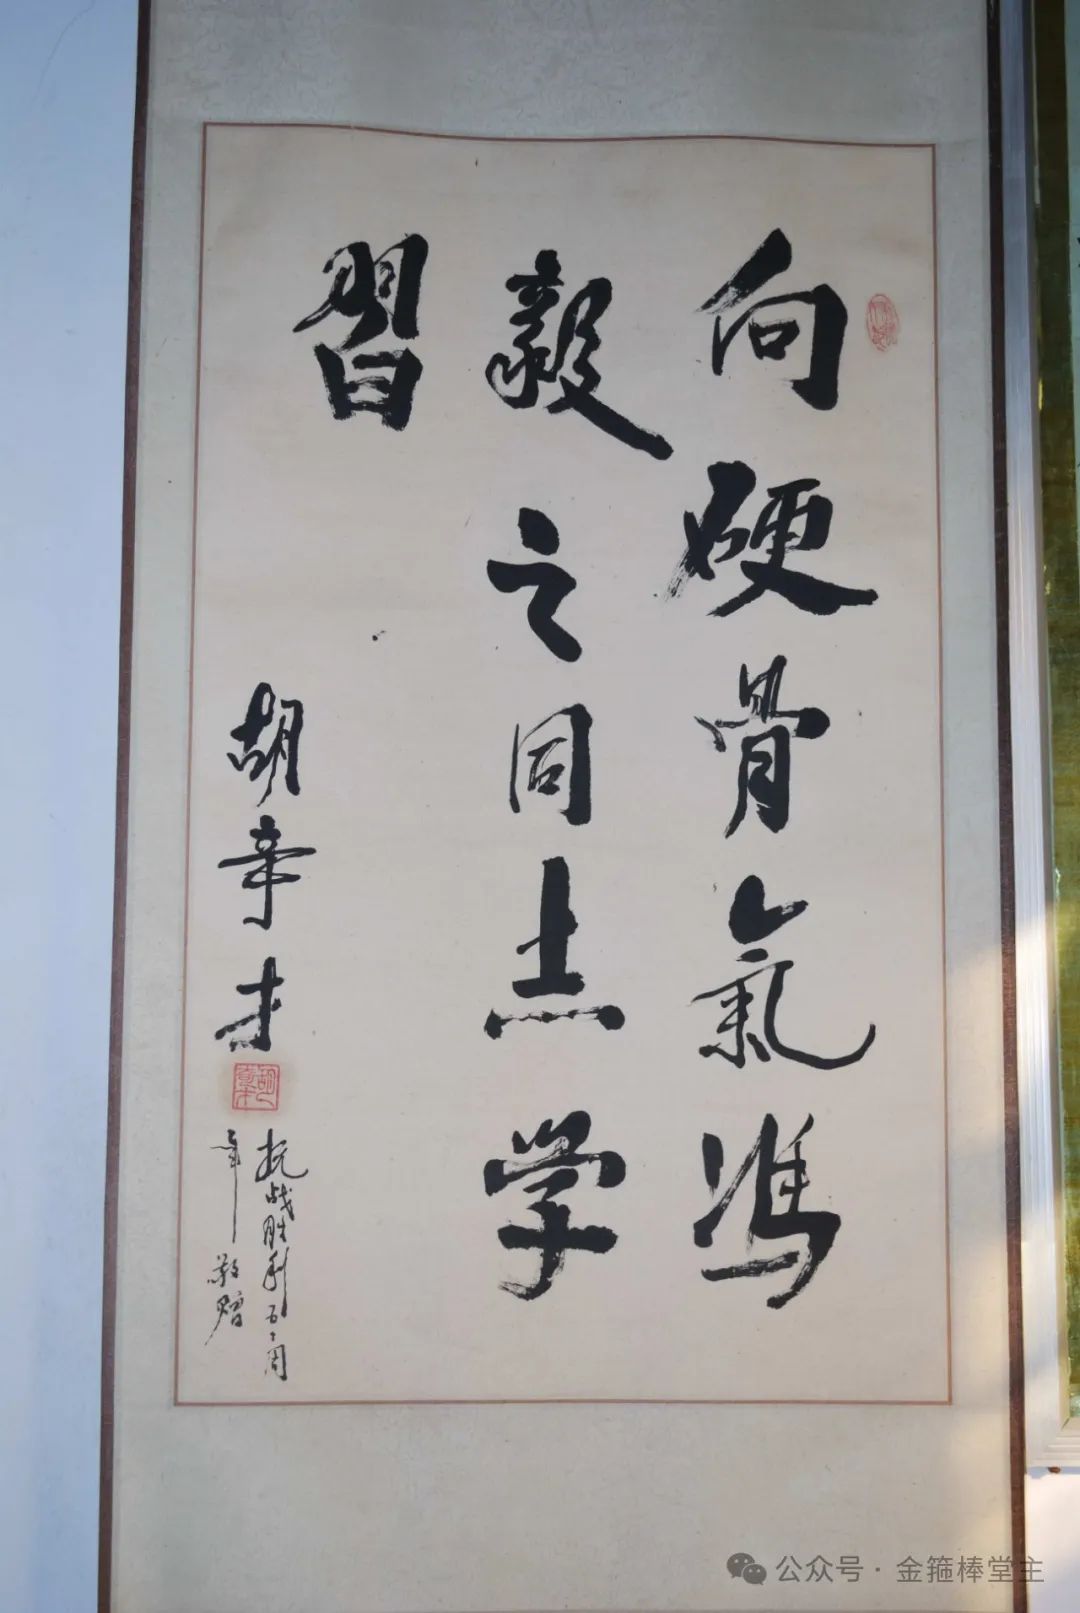 向硬骨氣馮
毅之同志学
習
胡章才
抗战胜利五十周
年敬赠
公众号·金箍棒堂主